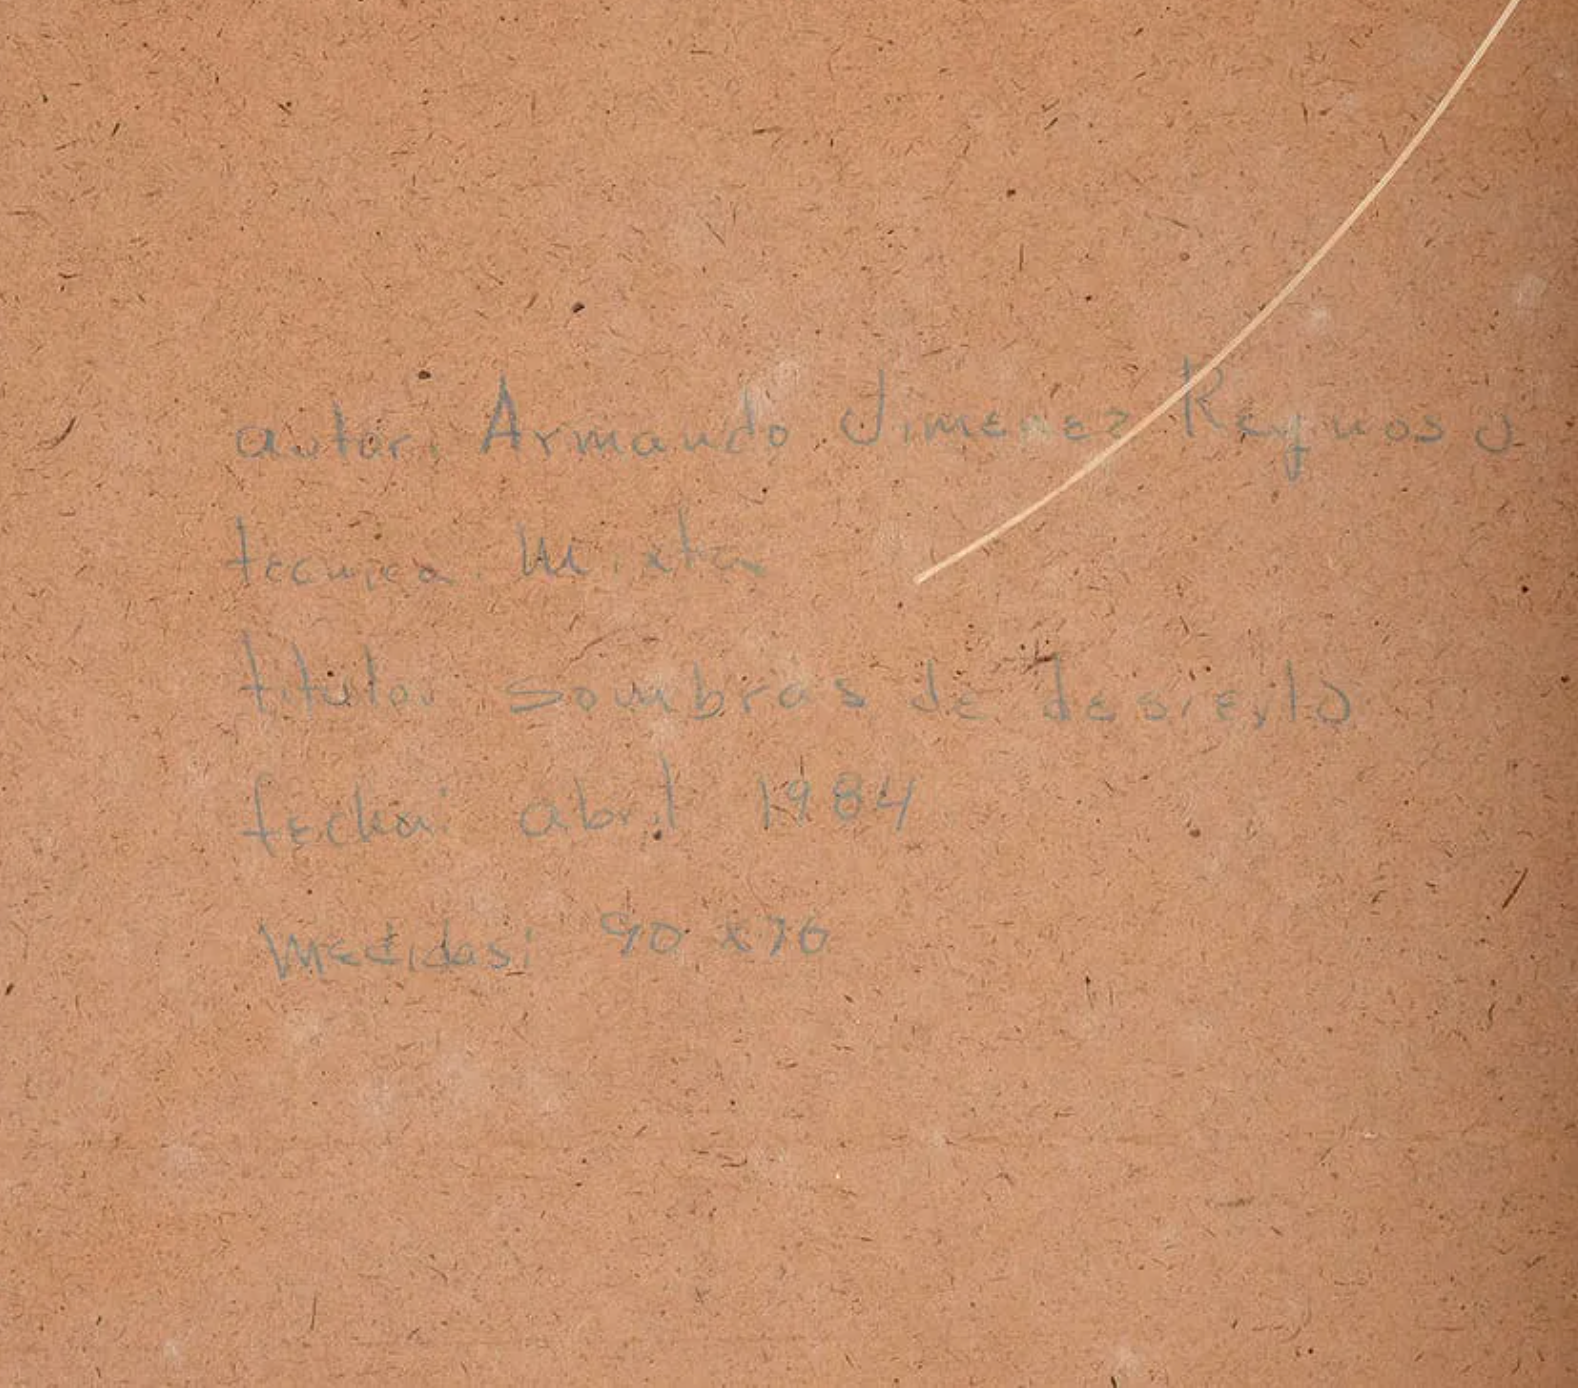 autor: Armando Jimenez Reynoso
tecnica: Mixta
titulo: sombras de desierto
fecha: abril 1984
Medidas: 90 x 70